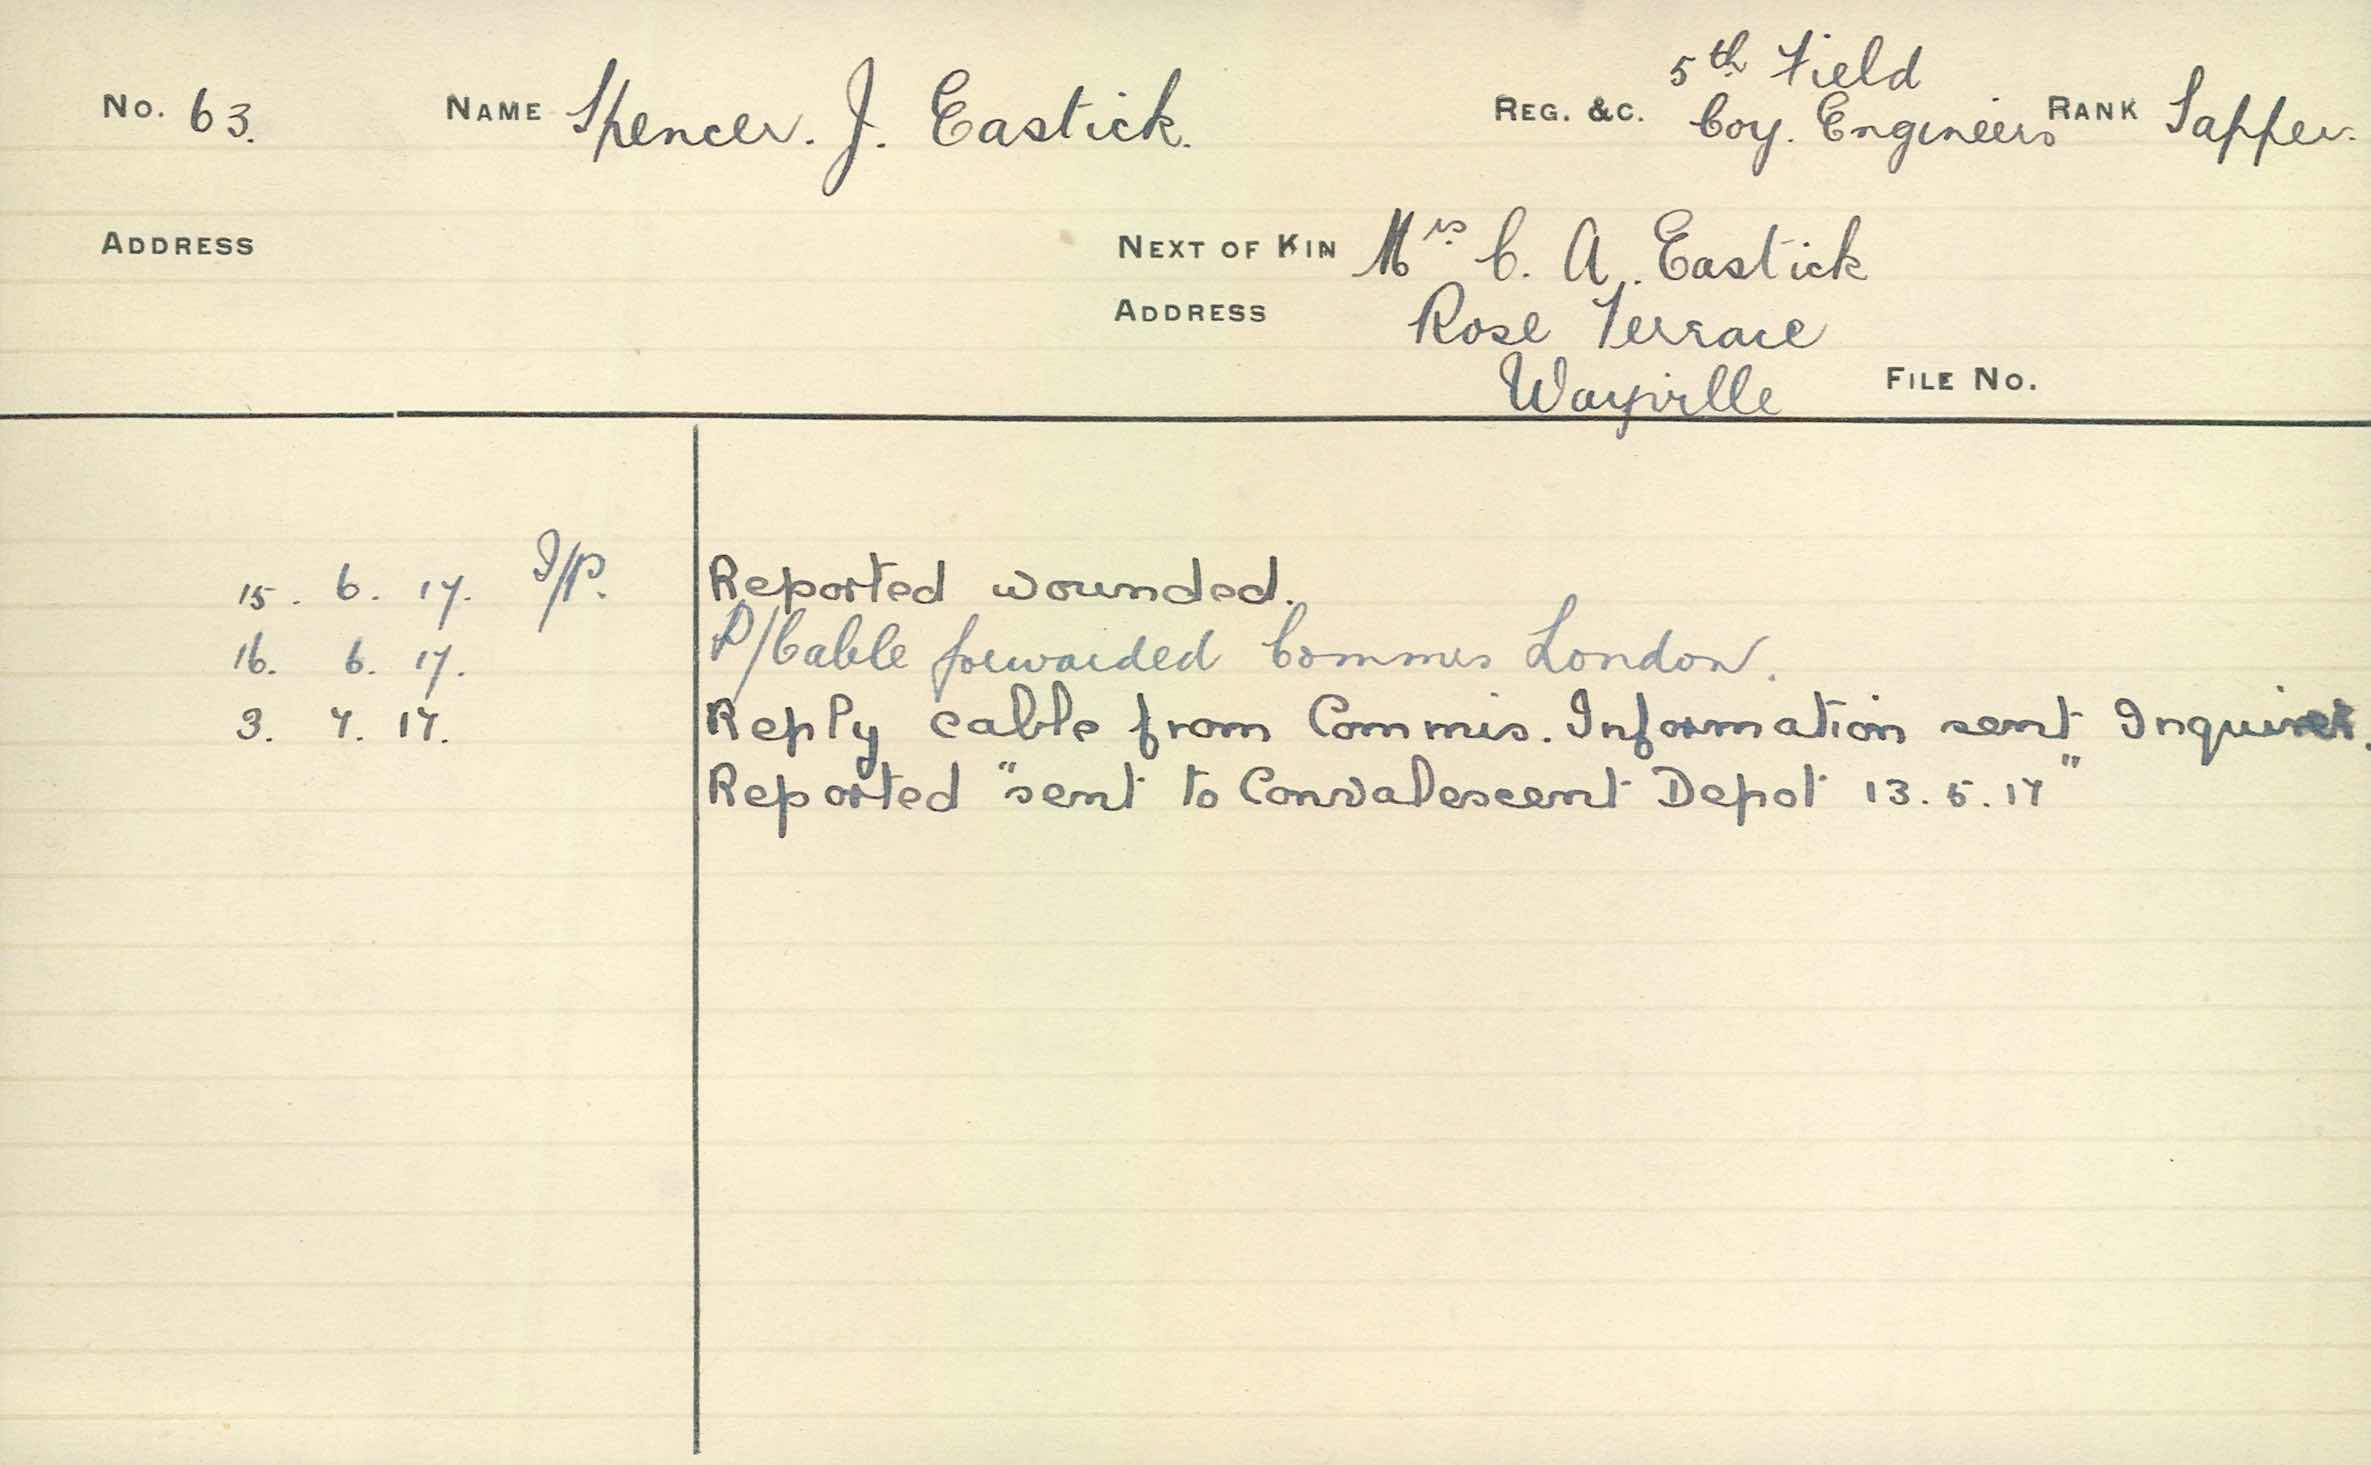 5th Field
No. 63. NAME Spencer. J. Eastick. REG. &C. Coy. Engineers RANK Sapper.
ADDRESS NEXT OF KIN Mrs C. A. Eastick
ADDRESS Rose Terrace
Wayville FILE No.
15. 6. 17. I/P. Reported wounded.
16. 6. 17. P/Cable forwarded Commis London.
3. 7. 17. Reply cable from Commis. Information sent Inquirer.
Reported "sent to Convalescent Depot 13.5.17"